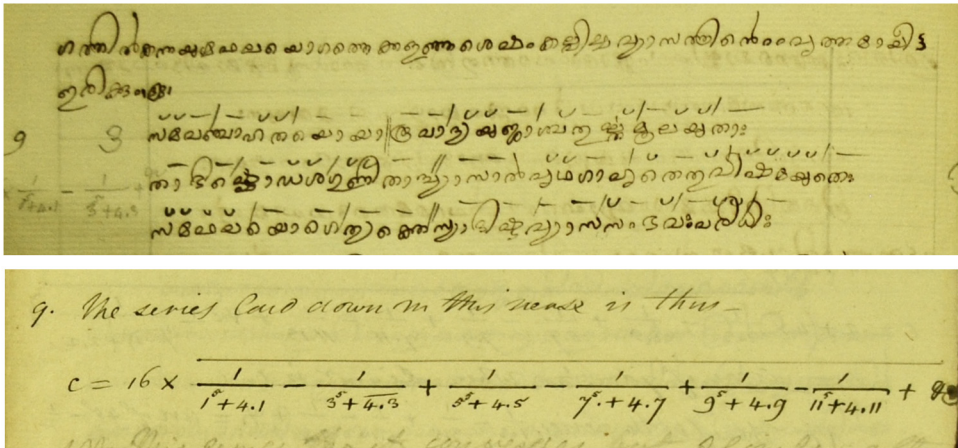 ഫലയൊഗത്തെ കളഞ്ഞശെഷം വ്യാസത്തിൻ വൃത്തമായിട്ട
ഇരിക്കും
9 3 സമപഞ്ചാഹതയൊ യാ രൂപാദ്യയുജാം ചതുൎഘ്നമൂലയുതാഃ
താഭിഃ ഷൊഡശഗുണിതാദ്വ്യാസാൽ പൃഥഗാഹൃതെഷു വിഷമയുതെഃ
1/1⁵+4.1 − 1/3⁵+4.3
സമഫലയൊഗെ ത്യക്തെ സ്യാദിഷ്ടവ്യാസസംഭവഃ പരിധിഃ
9. The series laid down in this verse is thus—
c = 16 × 1/1⁵+4.1 − 1/3⁵+4.3 + 1/5⁵+4.5 − 1/7⁵.+4.7 + 1/9⁵+4.9 − 1/11⁵+4.11 +